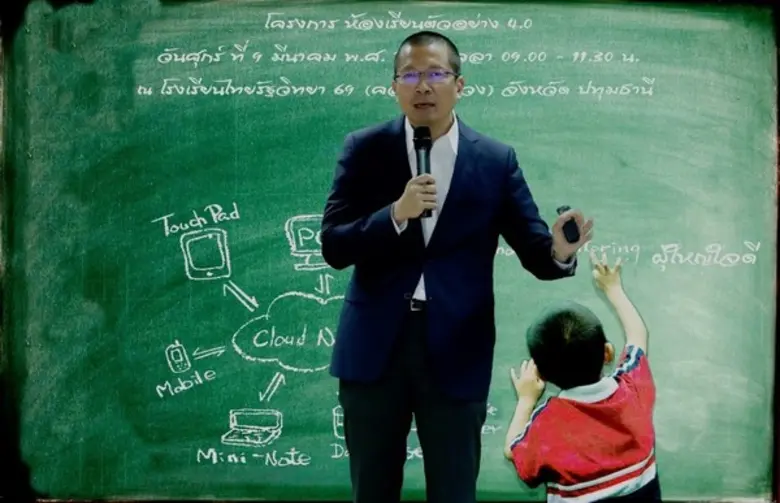 โครงการ ห้องเรียนตัวอย่าง 4.0
วันศุกร์ ที่ 9 มีนาคม พ.ศ. 09.00 - 11.30 น.
ณ โรงเรียนไทยรัฐวิทยา 69 จังหวัด ปทุมธานี
Touch Pad
ผู้ใหญ่ใจดี
Cloud
Mobile
Mini-Note